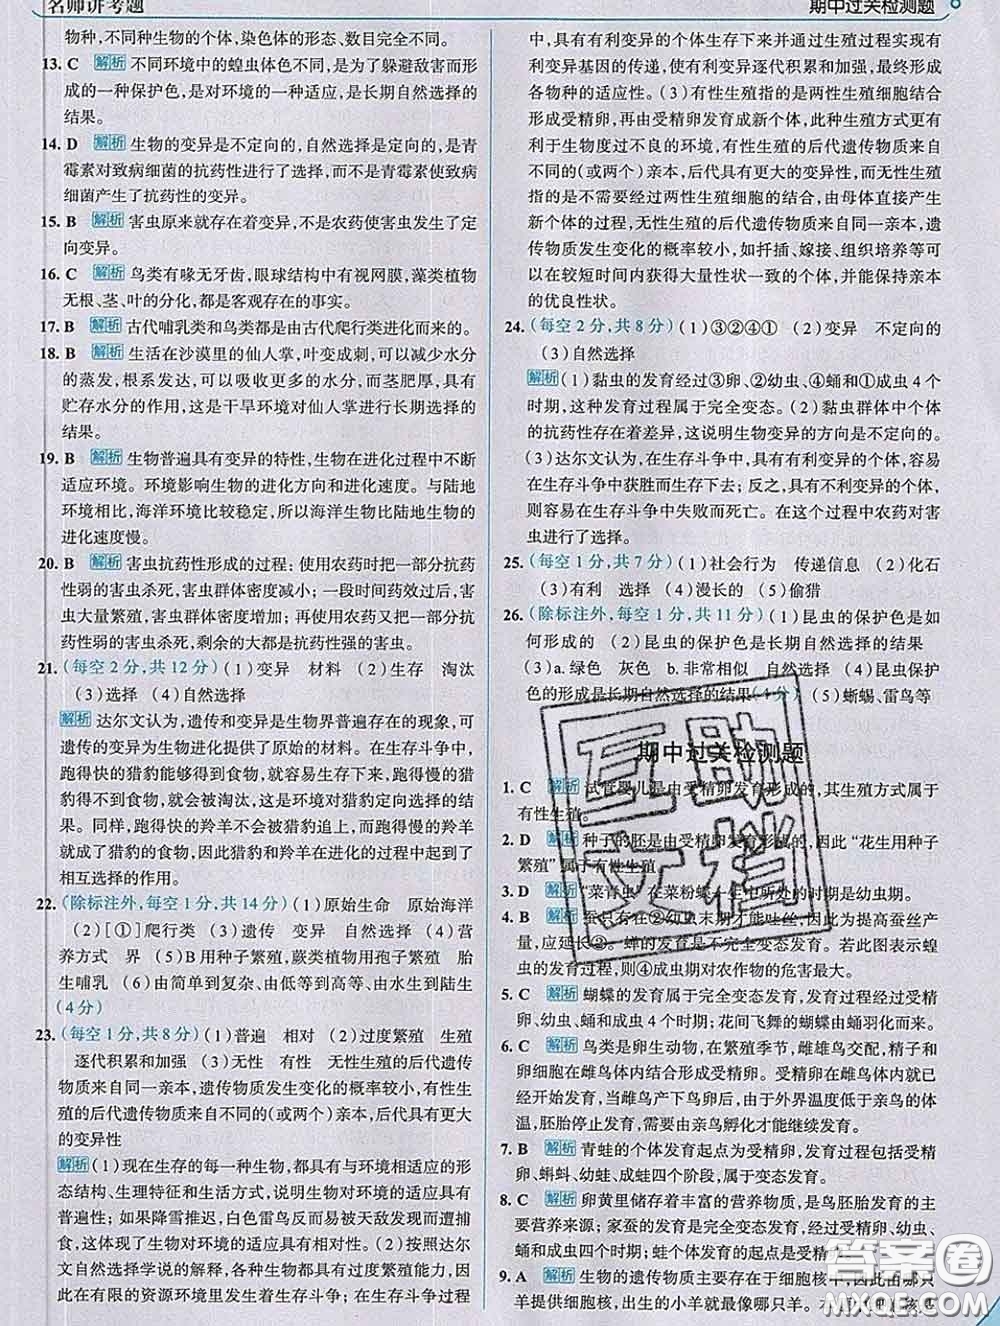 名师讲考题
期中过关检测题
物种,不同种生物的个体,染色体的形态、数目完全不同。
13. C 解析 不同环境中的蝗虫体色不同,是为了躲避敌害而形
成的一种保护色,是对环境的一种适应,是长期自然选择的
结果。
14. D 解析 生物的变异是不定向的,自然选择是定向的,是青
霉素对致病细菌的抗药性进行了选择,而不是青霉素使致病
细菌产生了抗药性的变异。
15. B 解析 害虫原来就存在着变异,不是农药使害虫发生了定
向变异。
16. C 解析 鸟类有喙无牙齿,眼球结构中有视网膜,藻类植物
无根、茎、叶的分化,都是客观存在的事实。
17. B 解析 古代哺乳类和鸟类都是由古代爬行类进化而来的。
18. B 解析 生活在沙漠里的仙人掌,叶变成刺,可以减少水分
的蒸发,根系发达,可以吸收更多的水分,而茎肥厚,具有
贮存水分的作用,这是干旱环境对仙人掌进行长期选择的
结果。
19. B 解析 生物普遍具有变异的特性,生物在进化过程中不断
适应环境。环境影响生物的进化方向和进化速度。与陆地
环境相比,海洋环境比较稳定,所以海洋生物比陆地生物的
进化速度慢。
20. B 解析 害虫抗药性形成的过程:使用农药时把一部分抗药
性弱的害虫杀死,害虫群体密度减小;一段时间药效过后,害
虫大量繁殖,害虫群体密度增加;再使用农药又把一部分抗
药性弱的害虫杀死,剩余的大都是抗药性强的害虫。
21. (每空2分,共12分) (1)变异 材料 (2)生存 淘汰
(3)选择 (4)自然选择
解析 达尔文认为,遗传和变异是生物界普遍存在的现象,可
遗传的变异为生物进化提供了原始的材料。在生存斗争中,
跑得快的猎豹能得到食物,就容易生存下来,跑得慢的猎豹
得不到食物,就会被淘汰,这是环境对猎豹定向选择的
结果。同样,跑得快的羚羊不会被猎豹追上,而跑得慢的羚羊
成了猎豹的食物,因此猎豹和羚羊在进化的过程中起到了
相互选择的作用。
22. (除标注外,每空1分,共14分) (1)原始生命 原始海洋
(2)[①]爬行类 (3)遗传 变异 自然选择 (4)营
养方式 界 (5)B用种子繁殖,蕨类植物用孢子繁殖 胎
生哺乳 (6)由简单到复杂、由低等到高等、由水生到陆生
(4分)
23. (每空1分,共8分) (1)普遍 相对 (2)过度繁殖 生殖
逐代积累和加强 (3)无性 有性 无性生殖的后代遗传
物质来自同一亲本,遗传物质发生变化的概率较小,有性生
殖的后代遗传物质来自不同的(或两个)亲本,后代具有更大
的变异性
解析 (1)现在生存的每一种生物,都具有与环境相适应的形态
结构、生理特征和生活方式,说明生物对环境的适应具有
普遍性;如果降雪推迟,白色雷鸟反而易被天敌发现而遭捕
食,这体现了生物对环境的适应具有相对性。(2)按照达尔
文自然选择学说的解释,各种生物都具有过度繁殖能力,因
此在有限的资源环境里发生着生存斗争;在生存斗争过程
中,具有有利变异的个体生存下来并通过生殖过程实现有
利变异基因的传递,使有利变异逐代积累和加强,最终形成
各物种的适应性。(3)有性生殖指的是两性生殖细胞结合
形成受精卵,再由受精卵发育成新个体,此种生殖方式更有
利于生物度过不良的环境,有性生殖的后代遗传物质来自
不同的(或两个)亲本,后代具有更大的变异性,而无性生殖
指的是不需要经过两性生殖细胞的结合,由母体直接产生
新个体的过程,无性生殖的后代遗传物质来自同一亲本,遗
传物质发生变化的概率较小,如扦插、嫁接、组织培养等可以
在较短时间内获得大量性状一致的个体,并能保持亲本
的优良性状。
24. (每空2分,共8分) (1)③②④① (2)变异 不定向的
(3)自然选择
解析 (1)黏虫的发育经过③卵、②幼虫、④蛹和①成虫4个
时期,这种发育过程属于完全变态。(2)黏虫群体中个体
的抗药性存在着差异,这说明生物变异的方向是不定向的。
(3)达尔文认为,在生存斗争中,具有有利变异的个体,容易
在生存斗争中获胜而生存下去;反之,具有不利变异的个体,
则容易在生存斗争中失败而死亡。在这个过程中农药对害
虫进行了选择。
25. (每空1分,共7分) (1)社会行为 传递信息 (2)化石
(3)有利 选择 (4)漫长的 (5)偷猎
26. (除标注外,每空1分,共11分) (1)昆虫的保护色是如
何形成的 (2)昆虫的保护色是长期自然选择的结果
(3)a. 绿色 灰色 b. 非常相似 自然选择 (4)昆虫保护
色的形成是长期自然选择的结果(4分) (5)蜥蜴、雷鸟等
期中过关检测题
1. C 解析 试管婴儿是由受精卵发育形成的,其生殖方式属于
有性生殖。
2. D 解析 种子的胚是由受精卵发育形成的,因此“花生用种子
繁殖”属于有性生殖。
3. D 解析 “菜青虫”在菜粉蝶一生中所处的时期是幼虫期。
4. B 解析 蚕只有在②幼虫末期才能吐丝,为此为提高蚕丝产
量,应延长②。蝉的发育是不完全变态发育。若此图表示蝗
虫的发育过程,则④成虫期对农作物的危害最大。
5. C 解析 蝴蝶的发育属于完全变态发育,发育过程经过受精
卵、幼虫、蛹和成虫4个时期;花间飞舞的蝴蝶由蛹羽化而来。
6. C 解析 鸟类是卵生动物,在繁殖季节,雌雄鸟交配,精子和
卵细胞在雌鸟体内结合形成受精卵。受精卵在雌鸟体内就已
经开始发育,当雌鸟产下鸟卵后,由于外界温度低于亲鸟的体
温,胚胎停止发育,需要由亲鸟孵化才能继续发育。
7. B 解析 青蛙的个体发育起点为受精卵,发育过程经过受精
卵、蝌蚪、幼蛙、成蛙四个阶段,属于变态发育。
8. C 解析 卵黄里储存着丰富的营养物质,是鸟胚胎发育的主
要营养来源;家蚕的发育是完全变态发育,经过受精卵、幼虫、
蛹和成虫四个时期;蛙个体发育的起点是受精卵
9. A 解析 生物的遗传物质主要存在于细胞核中,因此由哪只
羊提供细胞核,出生的小羊就最像哪只羊。
互助
文档
答案圈